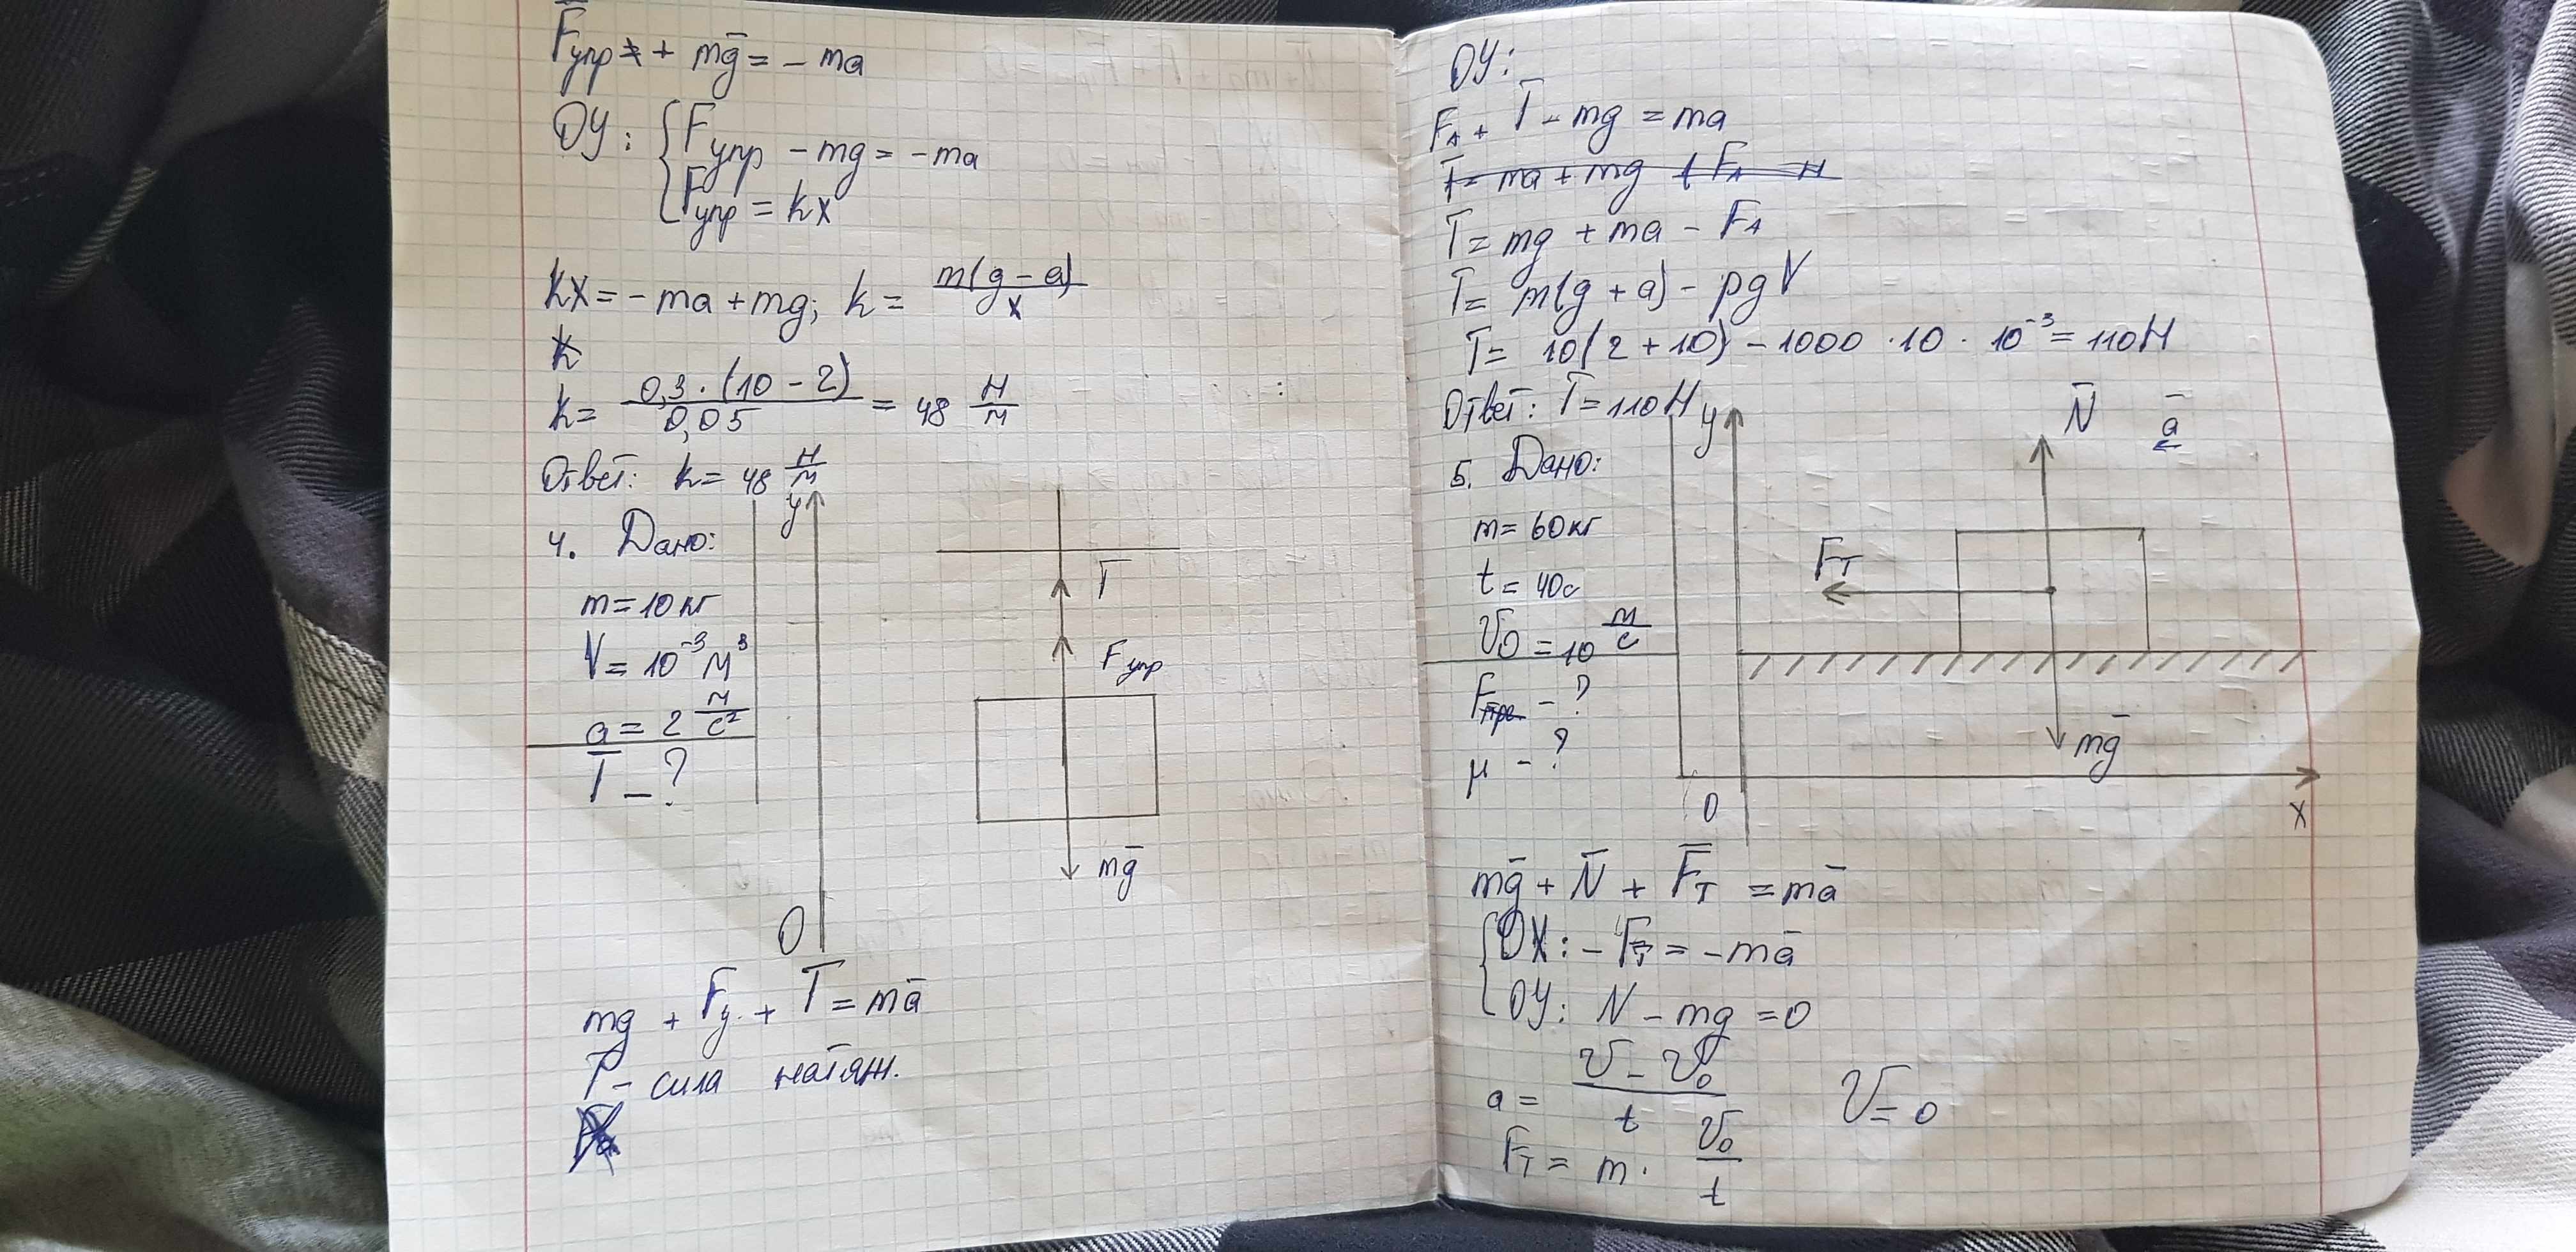 F̅упр + mg̅ = - ma
OY: { Fупр - mg = - ma
Fупр = kx
kx = - ma + mg; k = m(g - a)/x
k
k = 0,3 · (10 - 2)/0,05 = 48 Н/м
Ответ: k = 48 Н/м
4. Дано:
m = 10 кг
V = 10⁻³ м³
a = 2 м/с²
T̅ - ?
y
T̅
Fупр
mg̅
O
mg + Fу. + T̅ = ma̅
T̅ - сила натяж.
OY:
FA + T̅ - mg = ma
T̅ = ma + mg + FA
T̅ = mg + ma - FA
T̅ = m(g + a) - pgV
T̅ = 10(2 + 10) - 1000 · 10 · 10⁻³ = 110Н
Ответ: T̅ = 110Н
5. Дано:
m = 60 кг
t = 40с
V0 = 10 м/с
Fтр - ?
μ - ?
y
N̅
a̅
Fт
mg̅
O
x
mg̅ + N̅ + F̅т = ma̅
{ OX: - Fт = - ma̅
OY: N - mg = 0
a = V - V0/t V = 0
Fт = m · V0/t